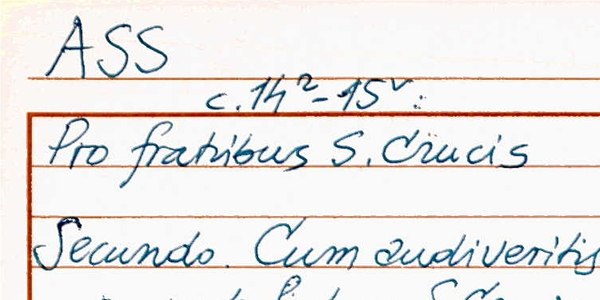 ASS
c. 14²-15ᵛ:
Pro fratribus S. Crucis
Secundo. Cum audiveritis